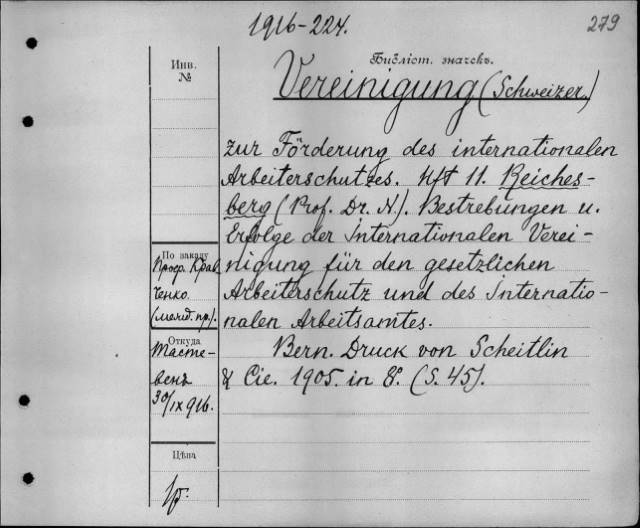 1916-224.
279
Инв.
№
Библіот. значекъ.
Vereinigung (Schweizer.)
zur Förderung des internationalen
Arbeiterschutzes. Hft 11. Reiches-
berg (Prof. Dr. N.). Bestrebungen u.
Erfolge der Internationalen Verei-
nigung für den gesetzlichen
Arbeiterschutz und des Internatio-
nalen Arbeitsamtes.
Bern. Druck von Scheitlin
& Cie. 1905. in 8º. (S. 45).
По заказу
Проф. Крав
ченко.
Откуда
Тасте-
венъ
30/IX 916.
Цѣна